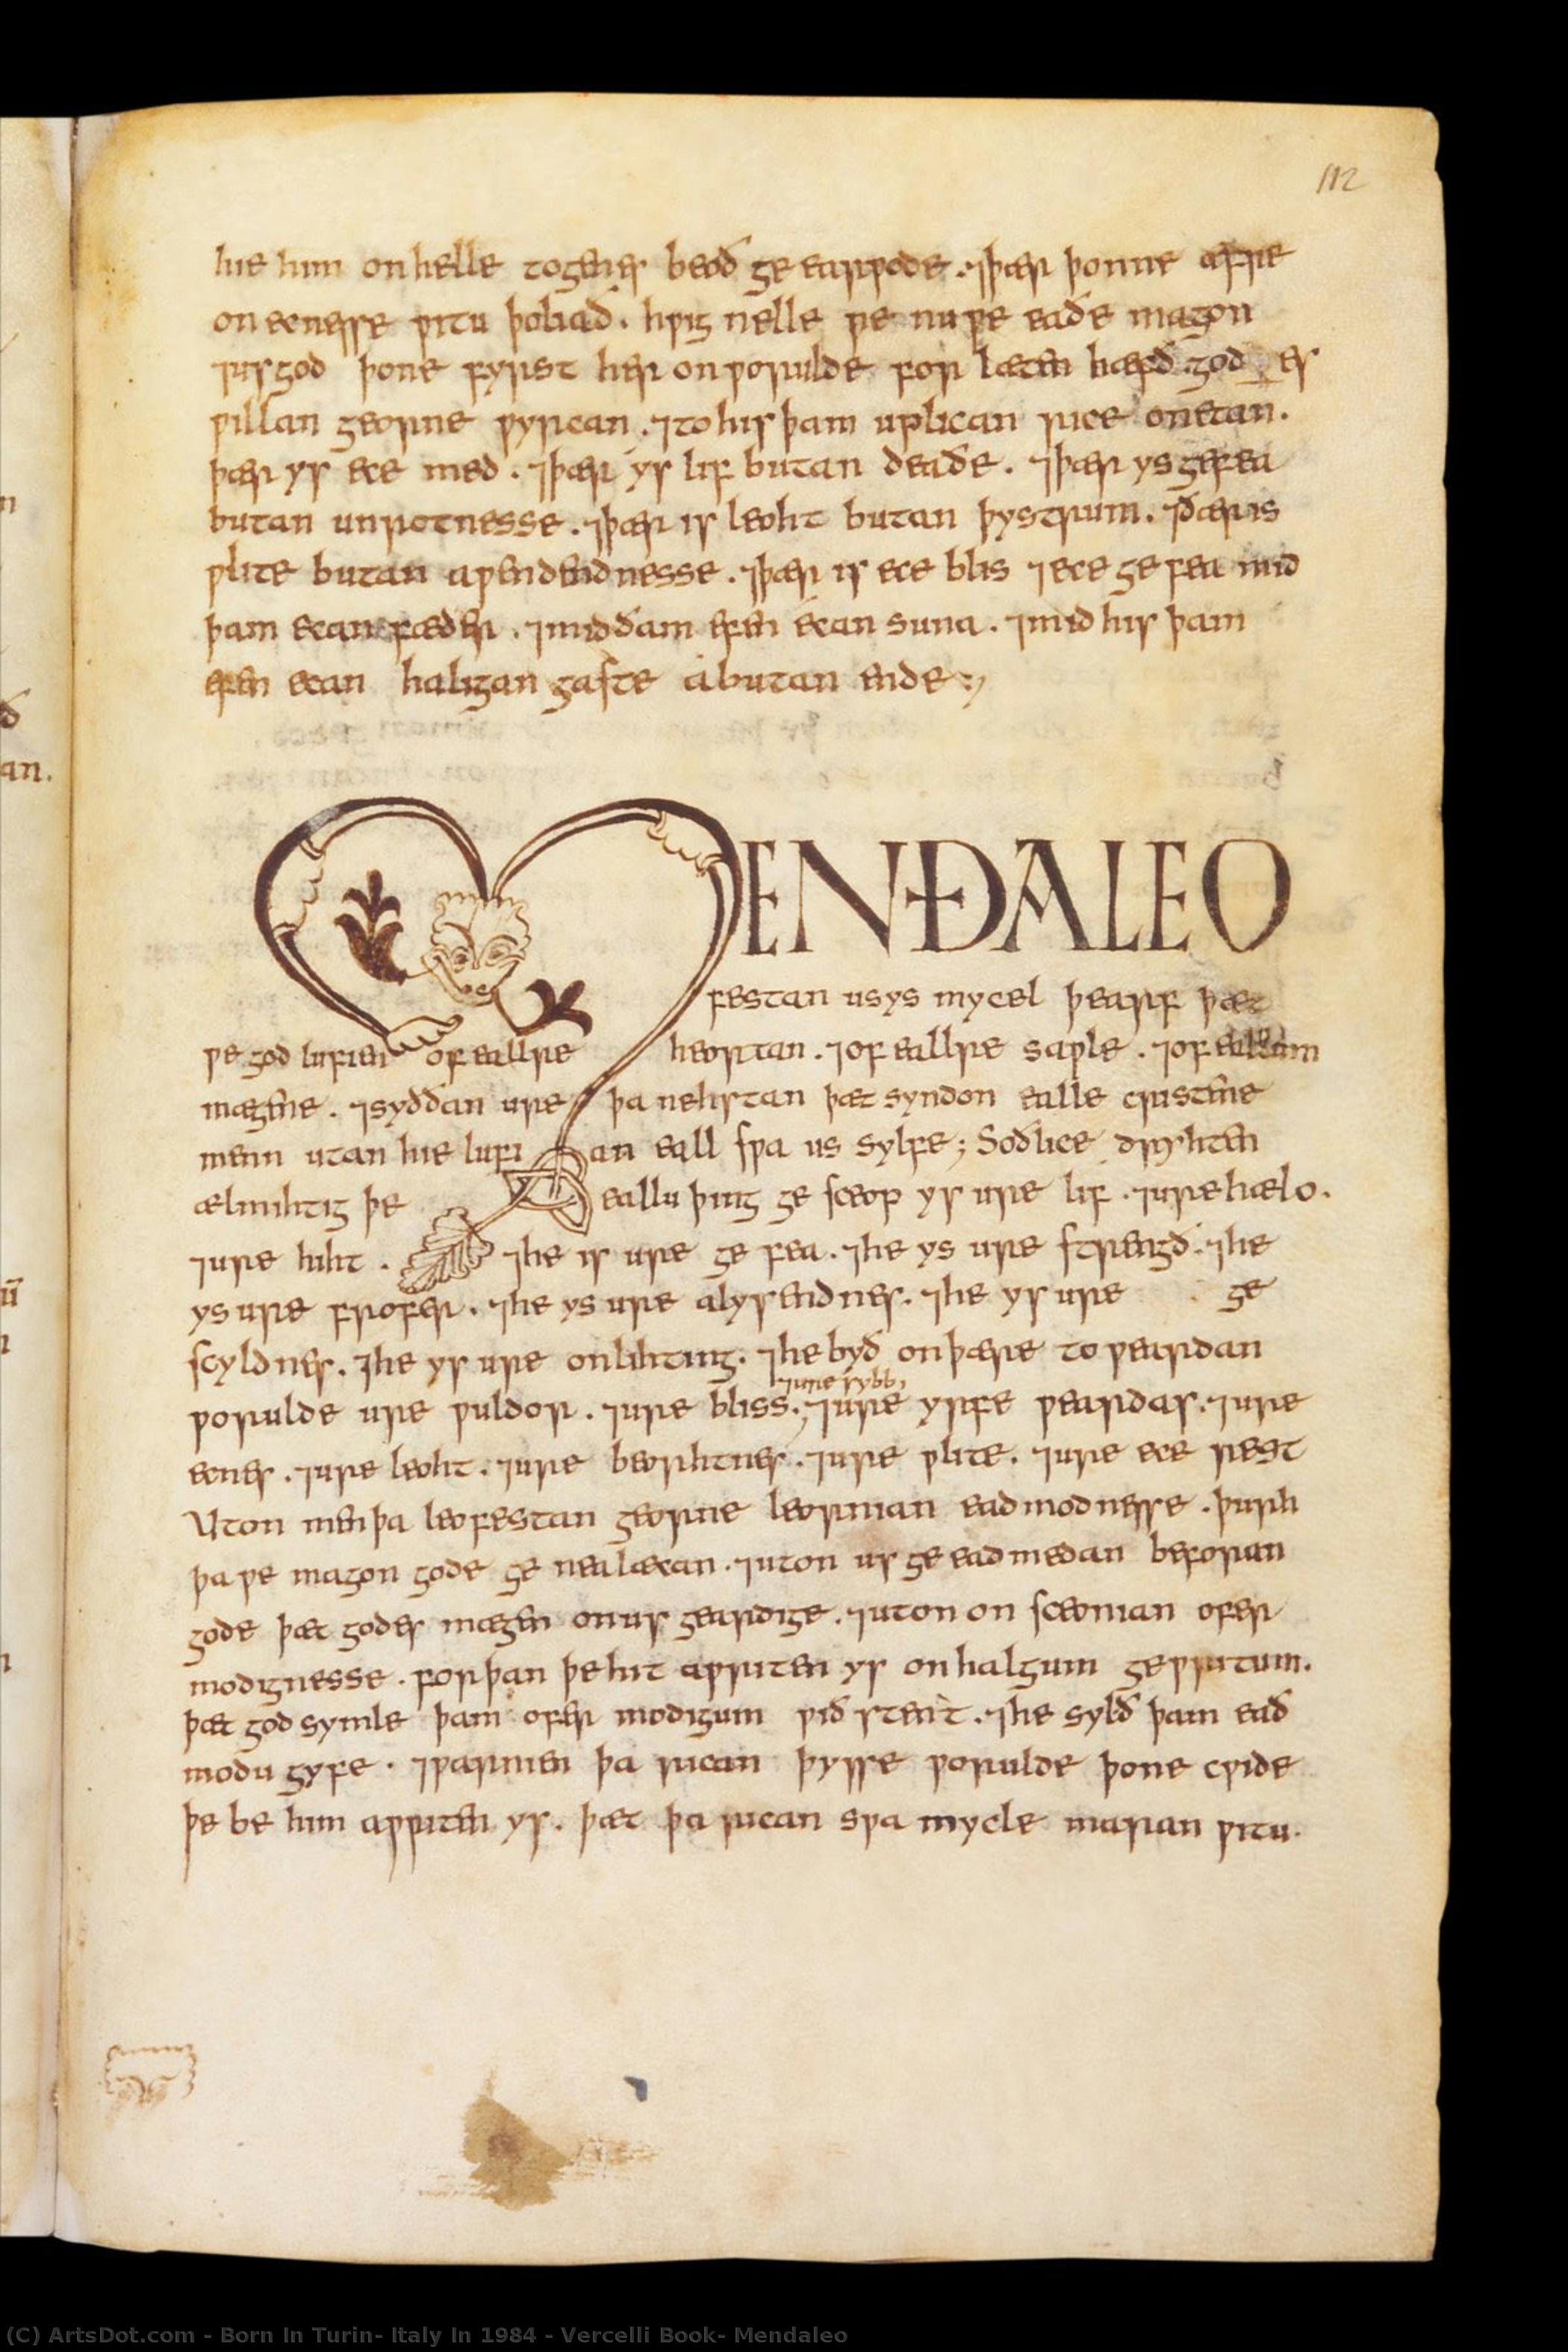 112
hie him on helle togenes beoð ge earƿode. ⁊þær þonne æfre
on ecnesse ƿitu þoliað. hƿig nelle ƿe nu ƿe eaðe magon
⁊us god þone fyrst her on ƿorulde for læten hæfð god es
ƿillan georne ƿyrcan. ⁊to his þam uplican rice onetan.
þær ys ece med. ⁊þær ys lif butan deaðe. ⁊þær ys gefea
butan unrotnesse. ⁊þær is leoht butan þystrum. ⁊ðær is
ƿlite butan aƿendendnesse. ⁊þær is ece blis ⁊ece ge fea mid
þam ecan fæder. ⁊mid ðam efen ecan suna. ⁊mid his þam
efen ecan haligan gaste á butan ende:,
MEN ÐA LEO
festan us ys mycel þearf þæt
ƿe god lufien of eallre heortan. ⁊of eallre saƿle. ⁊of eallum
mægene. ⁊syððan ure þa nehstan þæt syndon ealle cristene
menn utan hie lufi an eall sƿa us sylfe; Soðlice drihten
ælmihtig þe eallu þing ge sceop ys ure lif. ⁊ure hælo.
⁊ure hiht. ⁊he is ure ge fea. ⁊he ys ure strengð. ⁊he
ys ure frofer. ⁊he ys ure alysendnes. ⁊he ys ure ge
scyldnes. ⁊he ys ure onlihting. ⁊he byð on þære to ƿeardan
⁊ure sybb,
ƿorulde ure ƿuldor. ⁊ure bliss., ⁊ure yrfe ƿeardas. ⁊ure
ecnes. ⁊ure leoht. ⁊ure beorhtnes. ⁊ure ƿlite. ⁊ure ece rest
Uton men þa leofestan georne leornian eadmodnesse. þurh
þa ƿe magon gode ge nealæcan. ⁊uton us ge eadmedan beforan
gode þæt godes mægen on us geardige. ⁊uton on sceonian ofer
modignesse. for þan þe hit aƿriten ys on halgum geƿritum.
þæt god symle þam ofer modigum ƿið stent. ⁊he sylð þam eað
modu gyfe. ⁊ƿarnien þa rican þysse ƿorulde þone cƿide
þe be him aƿriten ys. þæt þa rican sƿa mycle maran ƿitu.
n
ð
an.
(C) ArtsDot.com - Born In Turin- Italy In 1984 - Vercelli Book- Mendaleo